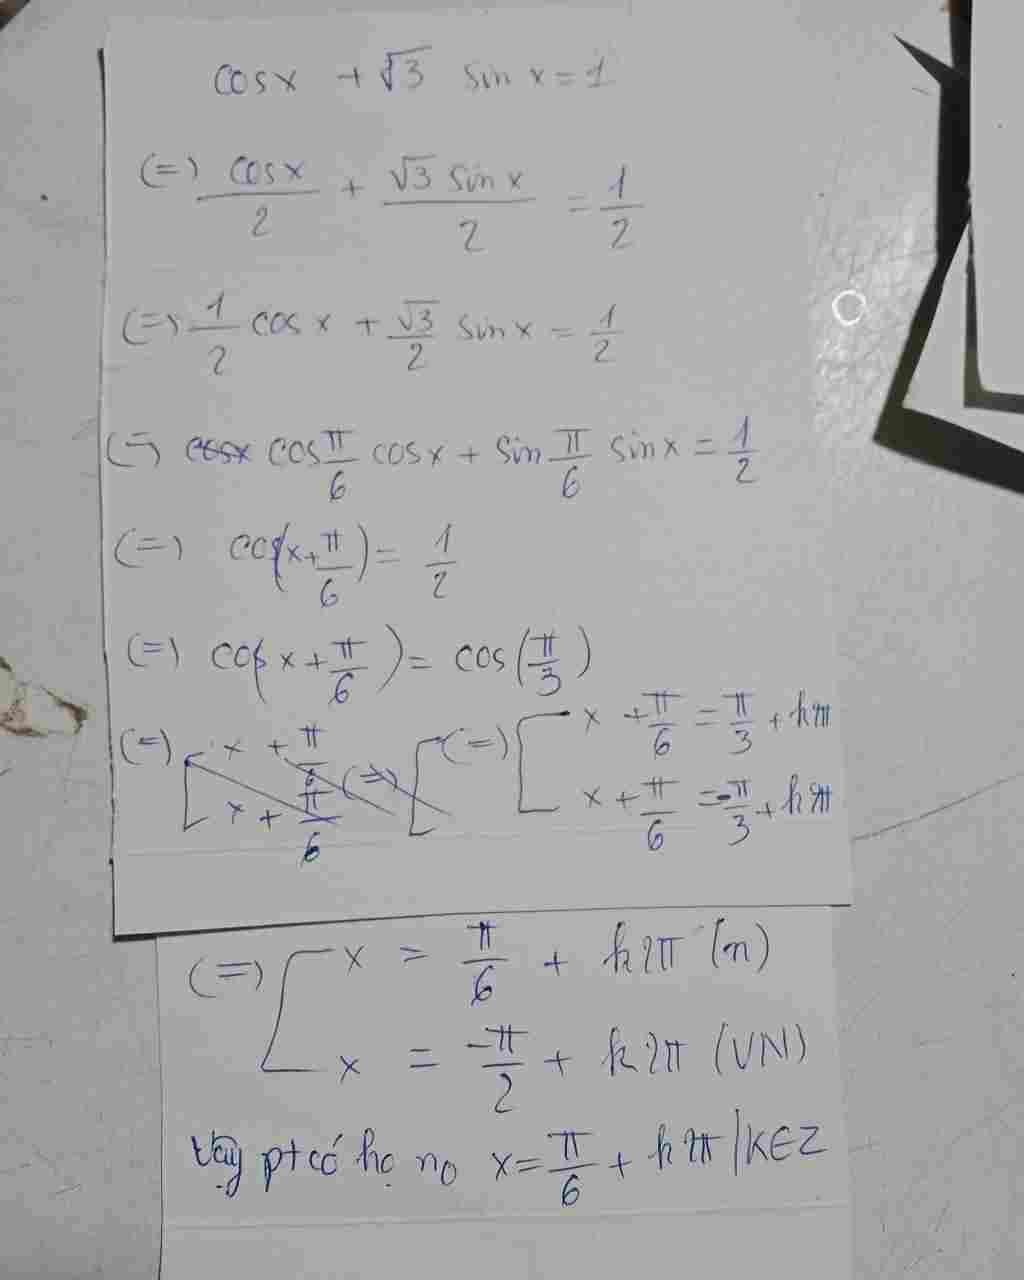 cosx + √3 sin x = 1
(=) cosx/2 + √3 sin x/2 = 1/2
(=) 1/2 cos x + √3/2 sin x = 1/2
(=) cosx cos π/6 cosx + sin π/6 sin x = 1/2
(=) cos(x + π/6) = 1/2
(=) cos(x + π/6) = cos(π/3)
(=) [ x + π/6 (=) [ (=) [ x + π/6 = π/3 + k2π
x + π/6 x + π/6 = -π/3 + k2π
(=) [ x = π/6 + k2π (n)
x = -π/2 + k2π (VN)
Vậy pt có họ no x = π/6 + k2π | K∈Z